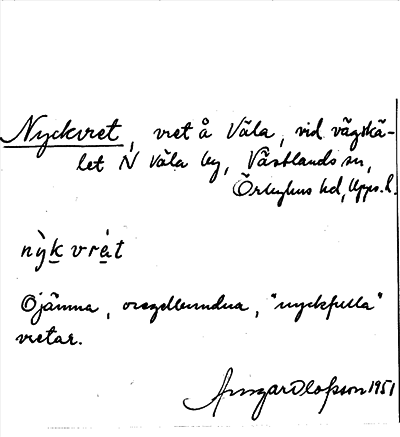 Nyckvret, vret å Väla, vid vägskä-
let N Väla by, Västlands sn,
Örbyhus hd, Upps. l.
nỳk vrèt
Ojämna, oregelbundna, "nyckfulla"
vretar.
Ansgar Olofsson 1951